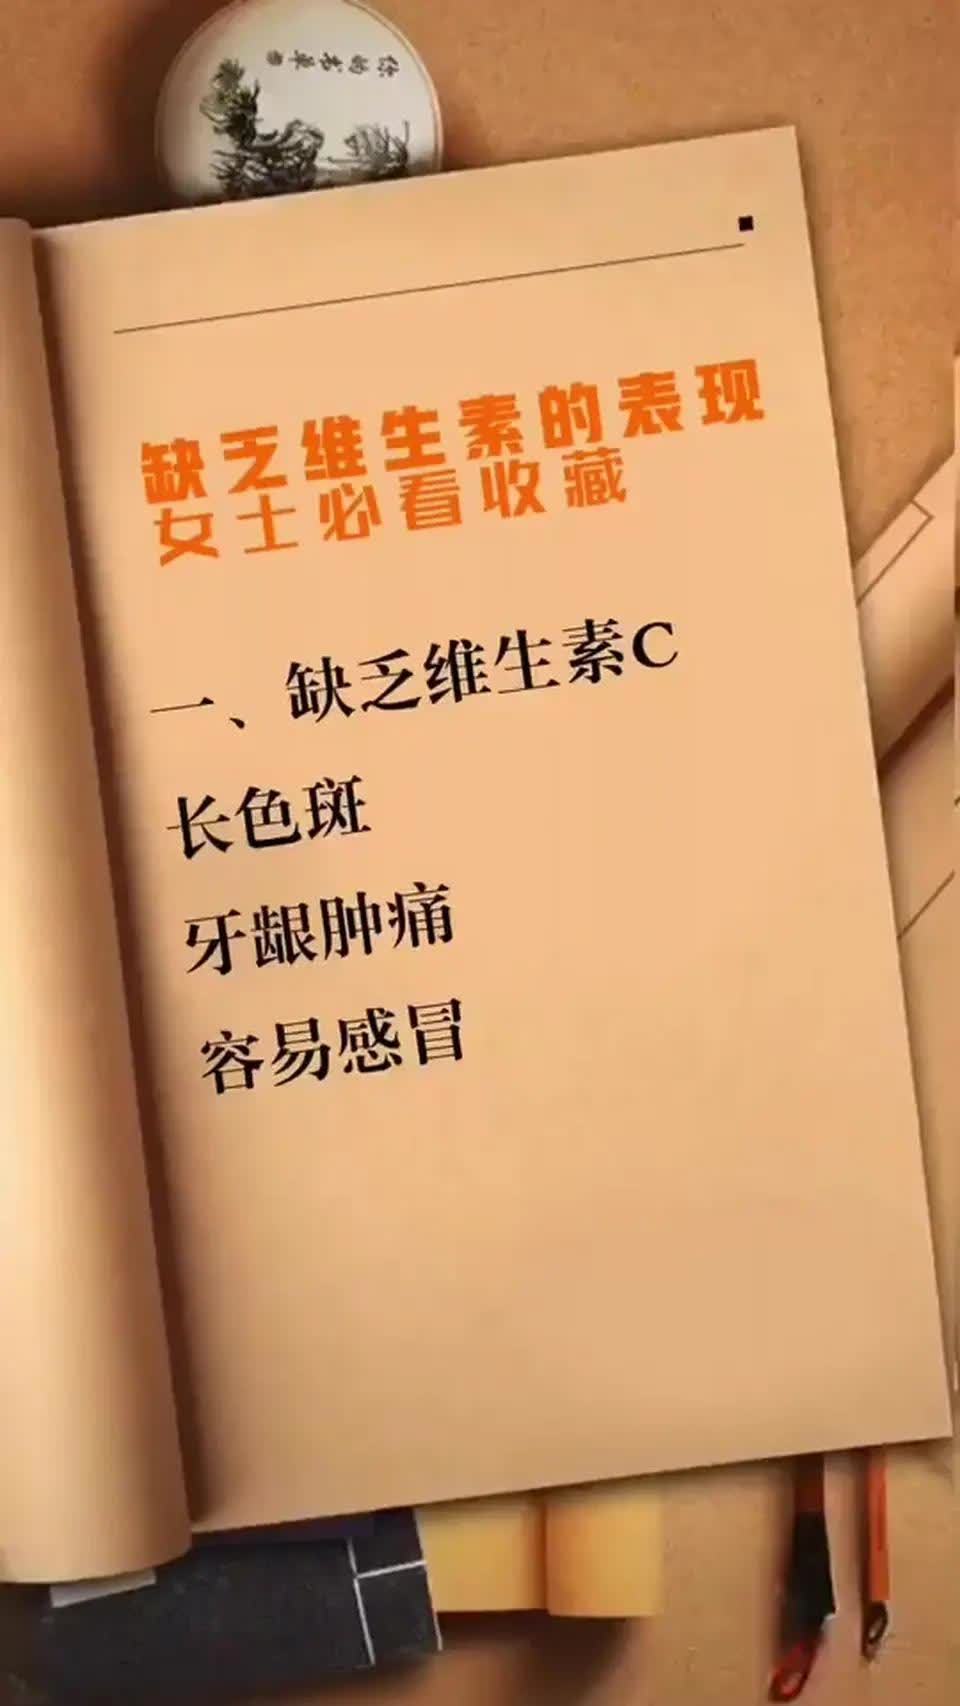 你的书单
缺乏维生素的表现
女士必看收藏
一、缺乏维生素C
长色斑
牙龈肿痛
容易感冒